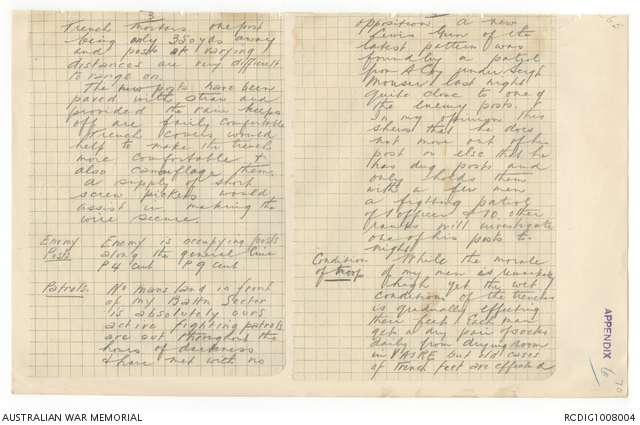 3
Trench mortars one post
being only 350 yds away
and posts at varying
distances are very difficult
to range on.
The new posts have been
paved with straw and
provided the rain keeps
off are fairly comfortable
Trench covers would
help to make the trench
more comfortable &
also camouflage them.
A supply of short
screw pickets would
assist in making the
wire secure.
Enemy Posts
Enemy is occupying posts
along the general line
P4 cent P9 cent
Patrols.
No mans land in front
of my Battn Sector
is absolutely ours
active fighting patrols
are out throughout the
hours of darkness
& have met with no
opposition. A new
Lewis Gun of the
latest pattern was
found by a patrol
from A Coy under Sergt
last night
quite close to one of
the enemy posts.
In my opinion this
shews that he does
not move out of his
post or else that he
has dug posts and
only holds them
with a few men
a fighting patrol
of 1 officer & 10 other
ranks will investigate
one of his posts to-
night
Condition of troops
While the morale
of my men is
high yet the wet
condition of the trenches
is gradually effecting
their feet. Each man
gets a dry pair of socks
daily from drying room
in but cases
of trench feet are effected
APPENDIX 6
70
AUSTRALIAN WAR MEMORIAL
RCDIG1008004